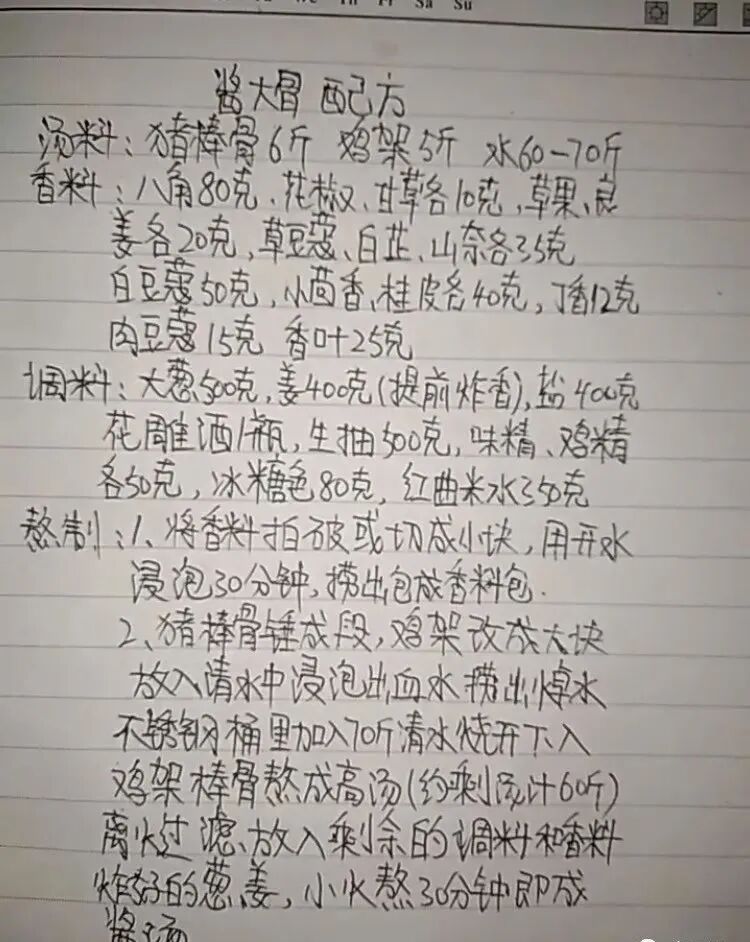 Fr Sa Su
酱大骨 配方
汤料：猪棒骨6斤 鸡架5斤 水60-70斤
香料：八角80克、花椒、甘草各10克，草果、良
姜各20克，草豆蔻、白芷、山奈各35克
白豆蔻50克，小茴香、桂皮各40克，丁香12克
肉豆蔻15克 香叶25克
调料：大葱500克，姜400克(提前炸香)，盐400克
花雕酒1瓶，生抽500克，味精、鸡精
各50克，冰糖色80克，红曲米水350克
熬制：1、将香料拍破或切成小块，用开水
浸泡30分钟，捞出包成香料包.
2、猪棒骨锤成段，鸡架改成大块
放入清水中浸泡出血水捞出焯水
不锈钢桶里加入70斤清水烧开下入
鸡架棒骨熬成高汤(约剩汤汁60斤)
离火过滤、放入剩余的调料和香料
炸好的葱姜，小火熬30分钟即成
酱汤